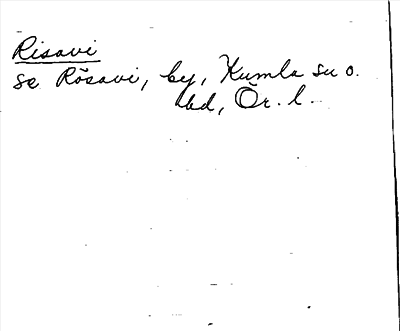 Risavi
se Rösavi, by, Kumla su o.
hd, Ör. l.